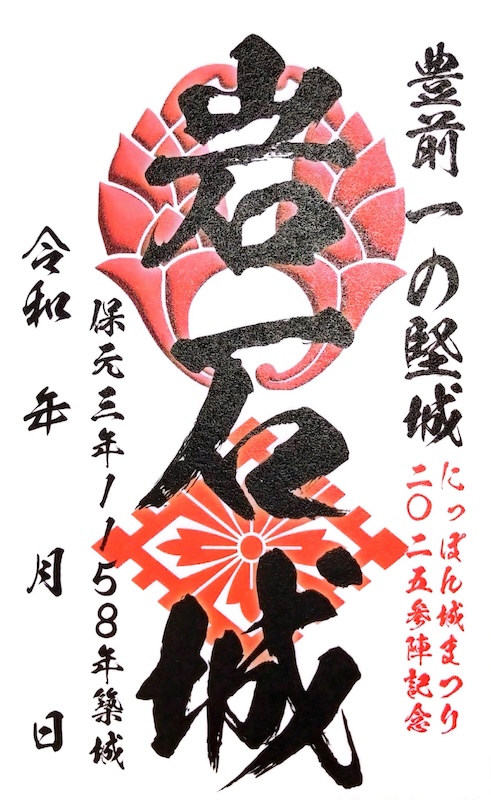 豊前一の堅城
にっぽん城まつり
二〇二五参陣記念
岩石城
保元三年1158年築城
令和 年 月 日